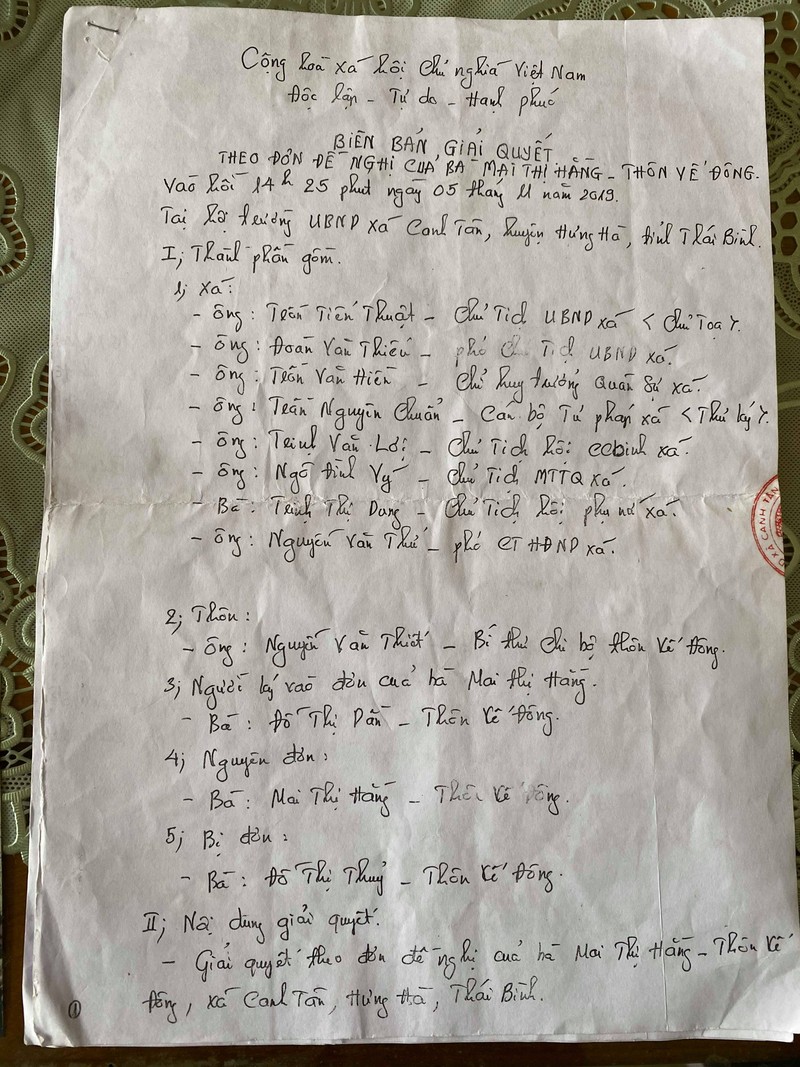 Cộng hoà xã hội chủ nghĩa Việt Nam
Độc lập - Tự do - Hạnh phúc
BIÊN BẢN GIẢI QUYẾT
THEO ĐƠN ĐỀ NGHỊ CỦA BÀ MAI THỊ HẰNG - THÔN VẾ ĐÔNG.
Vào hồi 14h 25 phút ngày 05 tháng 11 năm 2019.
Tại hội trường UBND xã Canh Tân, huyện Hưng Hà, tỉnh Thái Bình.
I; Thành phần gồm.
1; Xã:
- Ông: Trần Tiến Thuật - Chủ Tịch UBND xã < Chủ Toạ >.
- Ông: Đoàn Văn Thiều - phó Chủ Tịch UBND xã.
- Ông: Trần Văn Hiến - Chỉ huy trưởng Quân Sự xã.
- Ông: Trần Nguyên Chuẩn - Cán bộ Tư pháp xã < Thư ký >.
- Ông: Trịnh Văn Lợi - Chủ Tịch hội ccbinh xã.
- Ông: Ngô Đình Vỹ - Chủ Tịch MTTQ xã.
- Bà: Trịnh Thị Dung - Chủ Tịch hội phụ nữ xã.
- Ông: Nguyễn Văn Thử - phó CT HĐND xã.
XÃ CANH TÂN
2; Thôn:
- Ông: Nguyễn Văn Thiết - Bí thư chi bộ thôn Vế Đông.
3; Người ký vào đơn của bà Mai Thị Hằng.
- Bà: Đỗ Thị Dần - Thôn Vế Đông.
4; Nguyên đơn:
- Bà: Mai Thị Hằng - Thôn Vế Đông.
5; Bị đơn:
- Bà: Đỗ Thị Thuỷ - Thôn Vế Đông.
II; Nội dung giải quyết.
- Giải quyết theo đơn đề nghị của bà Mai Thị Hằng - Thôn Vế
Đông, xã Canh Tân, Hưng Hà, Thái Bình.
1